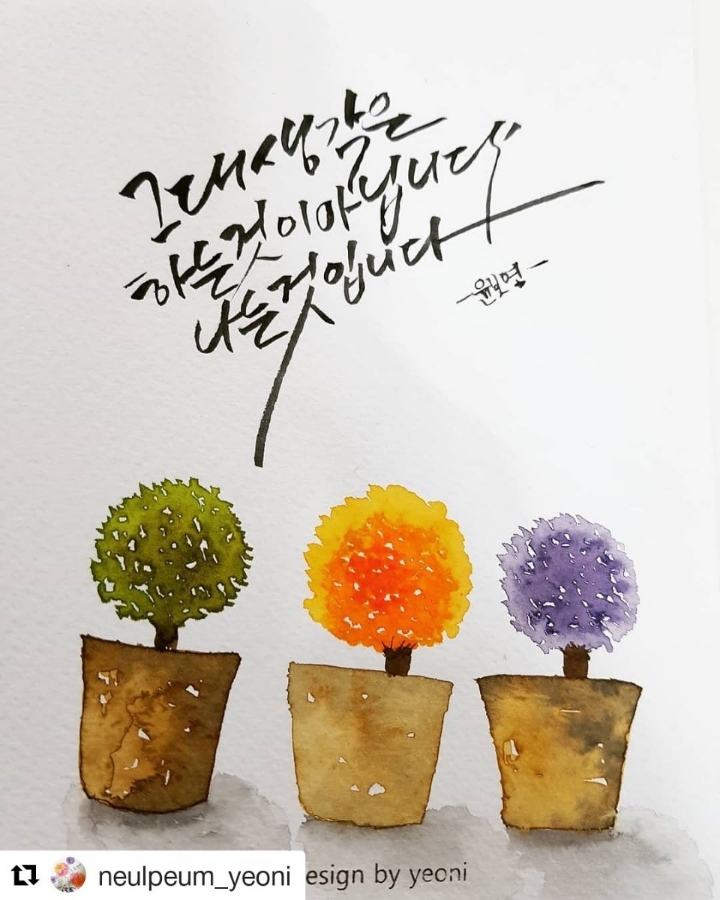 그대생각은
하는것이아닙니다
나는것입니다
-윤보영-
esign by yeoni
neulpeum_yeoni